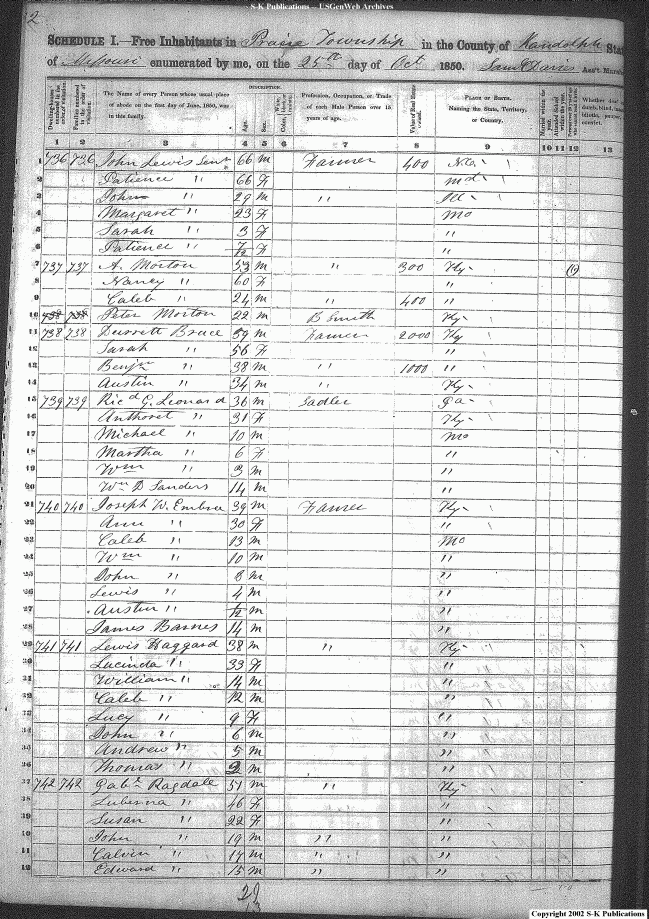 S-K Publications -- USGenWeb Archives
2
SCHEDULE I.—Free Inhabitants in Prairie Township in the County of Randolph State
of Missouri enumerated by me, on the 25th day of Oct 1850. Saml Davis Ass't Marshal
DESCRIPTION.
Dwelling-houses numbered in the order of visitation. Families numbered in the order of visitation. The Name of every Person whose usual place of abode on the first day of June, 1850, was in this family. Age. Sex. Color, Profession, Occupation, or Trade of each Male Person over 15 years of age. Value of Real Estate owned. PLACE OF BIRTH. Naming the State, Territory, or Country. Married within the year. Attended School within the year. Whether deaf
1 2 3 4 5 6 7 8 9 10 11 12 13
1 736 726 John Lewis Senr 66 m Farmer 400 "
2 Patience " 66 F Md "
3 John " 29 m "
4 Margaret " 23 F Mo
5 Sarah " 3 F "
6 Patience " F "
7 737 737 A. Morton 53 m " 300 Ky (1)
8 Nancy " 60 F "
9 Caleb " 24 m " 400 "
10 738 738 Peter Morton 22 m B Smith Ky
11 738 738 Durrett Bruce 59 m Farmer 2000 Ky
12 Sarah " 56 F "
13 Benjn " 38 m " 1000 "
14 Austin " 34 m " Ky
15 739 739 Ricd G. Leonard 36 m Sadler Ga
16 " 31 F Ky
17 Michael " 10 m Mo
18 Martha " 6 F "
19 Wm " 3 m "
20 Wm D Sanders 14 m "
21 740 740 Joseph W. Embree 39 m Farmer Ky
22 Ann " 30 F "
23 Caleb " 13 m Mo
24 Wm " 10 m "
25 John " 8 m "
26 Lewis " 4 m "
27 Austin " m "
28 James Barnes 14 m "
29 741 741 Lewis Haggard 38 m " Ky
30 Lucinda " 33 F "
31 William " 14 m "
32 Caleb " 12 m "
33 Lucy " 9 F "
34 John " 6 m "
35 Andrew " 5 m "
36 Thomas " 2 m "
37 742 742 Gabl Ragdale 51 m " Ky
38 " 46 F "
39 Susan " 22 F "
40 John " 19 m " "
41 Calvin " 17 m " "
42 Edward " 15 m " "
Copyright 2002 S-K Publications